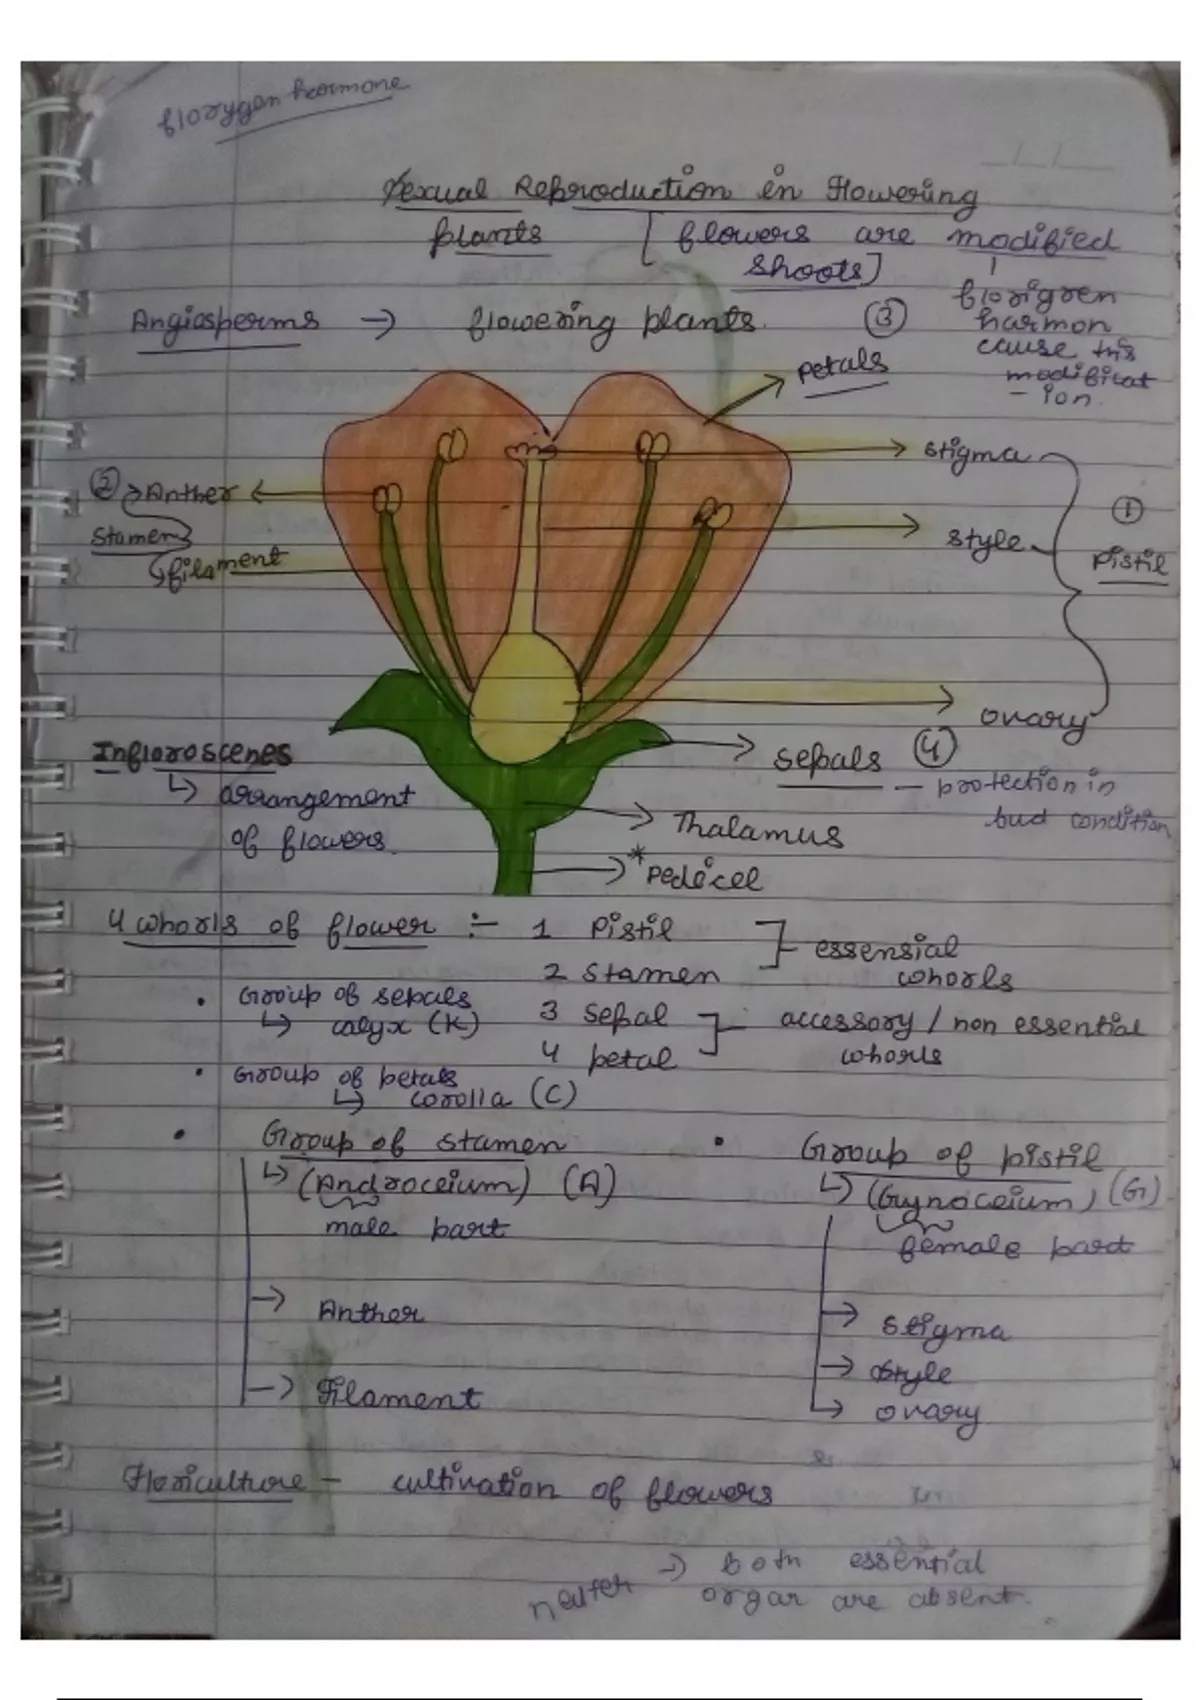 florygen hormone
Sexual Reproduction in Flowering
plants [flowers are modified
shoots]
florigren
harmon
cause this
modificat
-ion.
Angiosperms → flowering plants.
③
petals
stigma
② Anther
Stamen
filament
style
①
Pistil
ovary
Infloroscenes
↳ arrangement
of flowers.
sepals ④ – protection in
bud condition
Thalamus
*Pedicel
4 whorls of flower :- 1 Pistil
2 Stamen
essensial
whorls
• Group of sepals
↳ calyx (K)
3 Sepal
4 petal
accessory / non essential
whorls
• Group of petals
↳ corolla (C)
• Group of stamen
↳ (Androceium) (A)
male part
→ Anther
→ Filament
• Group of pistil
↳ (Gynoceium) (G)
female part
→ Stigma
→ Style
↳ ovary
Floriculture – cultivation of flowers
neuter → both essential
organ are absent.